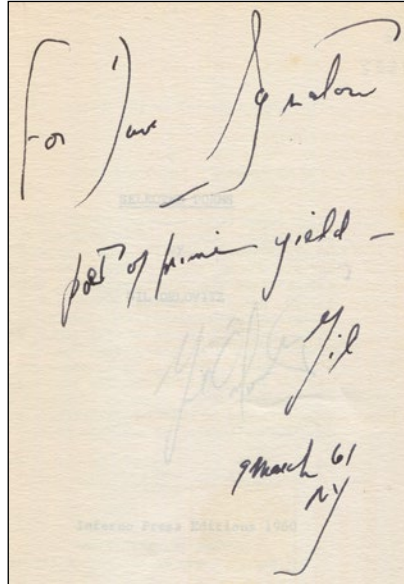 For Dave Ignatow
SELECTED POEMS
poet of prime yield —
GIL ORLOVITZ
Gil
9 March 61
NY
Inferno Press Editions 1960